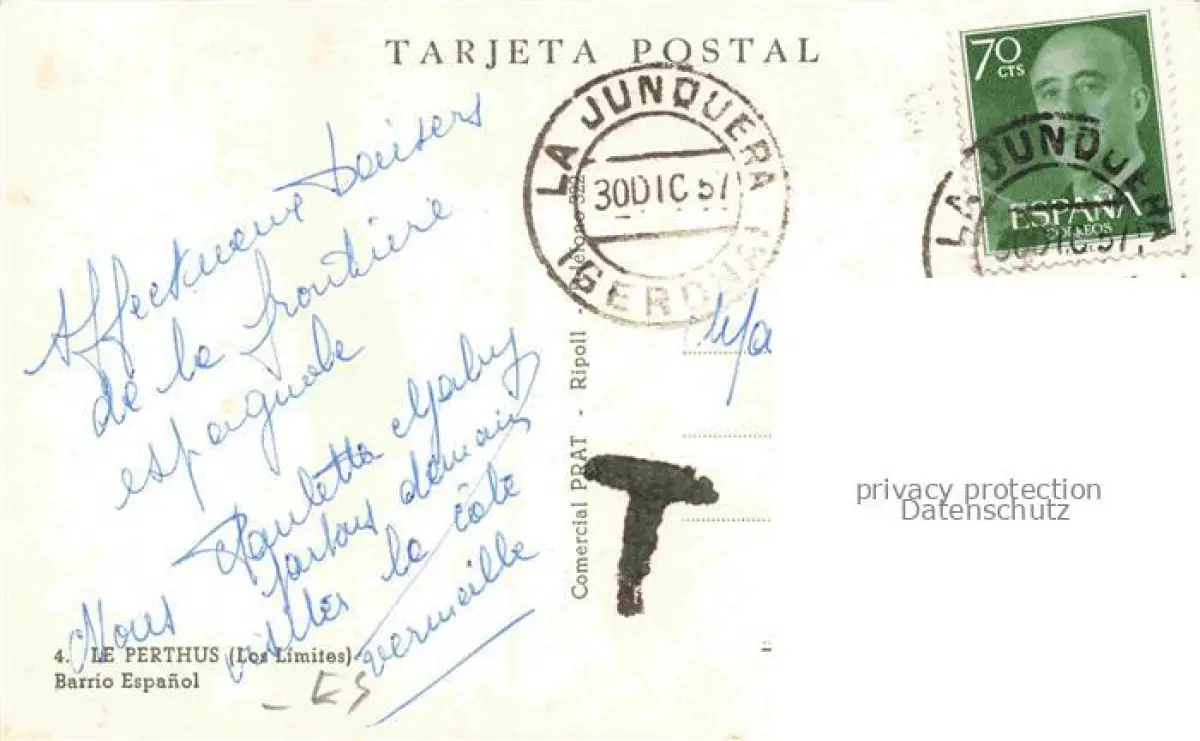 TARJETA POSTAL
Affectueux baisers
de la frontière
espagnole
Paulette Gaby
Nous partons demain
visiter la côte
vermeille
4. LE PERTHUS (Los Límites)
Barrio Español
ES
Comercial PRAT - Ripoll -
LA JUNQUERA
30 DIC 57
(GERONA)
T
70
CTS
ESPAÑA
CORREOS
LA JUNQUERA
30 DIC 57
privacy protection
Datenschutz